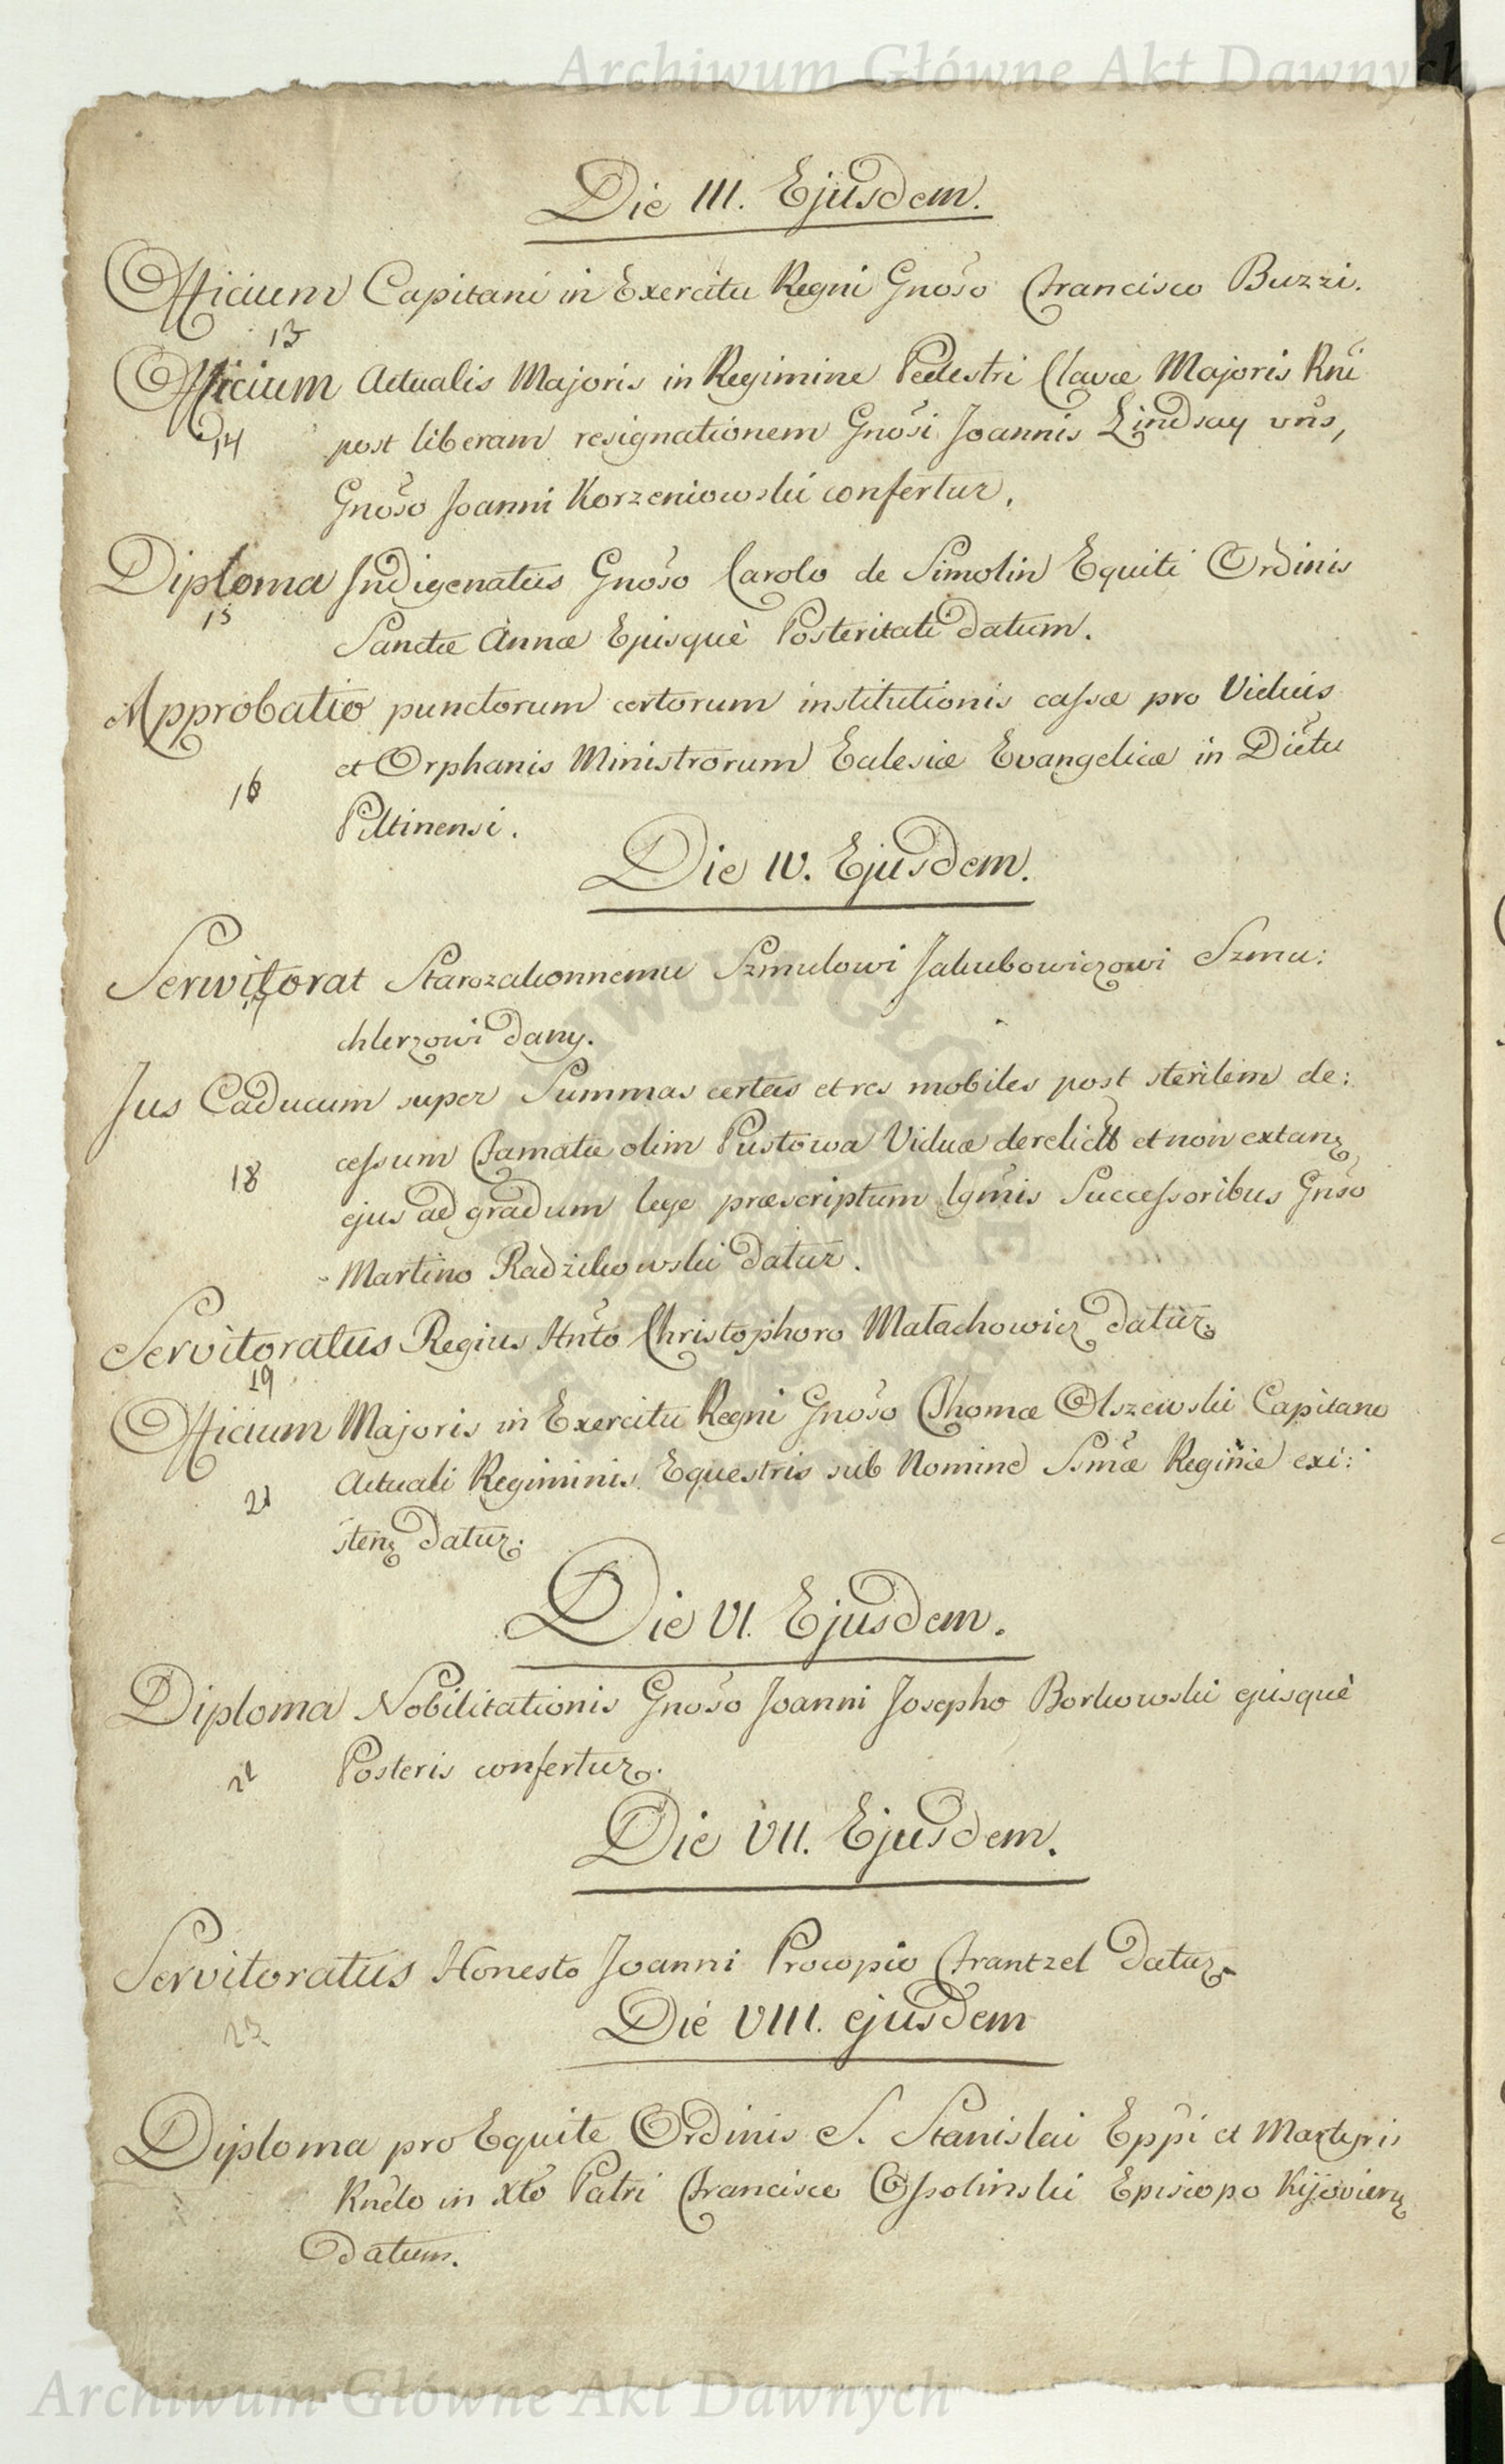 Archiwum Główne Akt Dawnych
Die III. Ejusdem.
Officium Capitani in Exercitu Regni Gnoso Francisco Buzzi.
13
Officium Actualis Majoris in Regimine Pedestri Clavæ Majoris Rni
14 post liberam resignationem Gnosi Joannis Lindsay
Gnoso Joanni Korzeniowski confertur.
Diploma Indigenatus Gnoso Carolo de Simolin Equiti Ordinis
15
Sanctæ Annæ Ejusquè Posteritati datum.
Approbatio punctorum certorum institutionis cassæ pro Viduis
et Orphanis Ministrorum Eclesiæ Evangelicæ in Dictu
16
Piltinensi.
Die IV. Ejusdem.
Serwitorat Starozakonnemu Szmulowi Jakubowiczowi Szmu:
17
chlerzowi dany.
Jus Caducum super Summas certas et res mobiles post sterilem de:
cessum Famatæ olim Pustowa Viduæ derelict et non extanz
18
ejus ad gradum lege præscriptum lgmis Successoribus Gnso
Martino Radzikowski datur.
Servitoratus Regius Hnto Christophoro Małachowicz datur.
19
Officium Majoris in Exercitu Regni Gnoso Thomæ Olszewski Capitano
Actuali Regiminis Equestris sub Nomine Ssmæ Reginæ exi:
21
stenz datur.
Die VI. Ejusdem.
Diploma Nobilitationis Gnoso Joanni Josepho Borkowski ejusquè
22 Posteris confertur.
Die VII. Ejusdem.
Servitoratus Honesto Joanni Procopio Frantzel datur.
Die VIII. ejusdem
23
Diploma pro Equite Ordinis S. Stanislai Eppi et Martyris
Rndo in Xto Patri Francisco Ossolinski Episcopo Kijovienz
datum.
Archiwum Główne Akt Dawnych